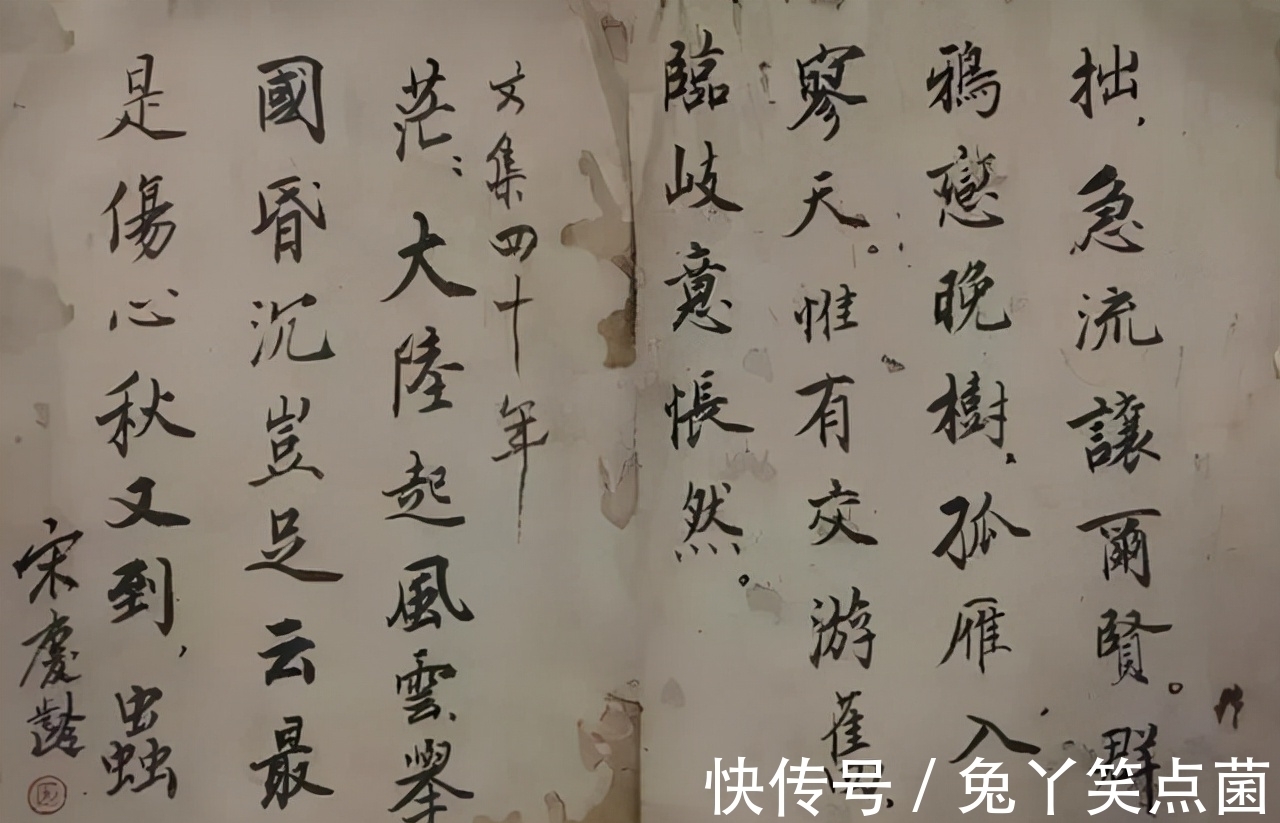 拙,急流讓爾賢。群
鴉戀晚樹,孤雁入
寥天。惟有交游舊,
臨岐意悵然。
文集四十年
茫〻大陸起風雲、舉
國昏沉豈足云最
是傷心秋又到,蟲
宋慶齡
快传号 / 兔丫笑点菌